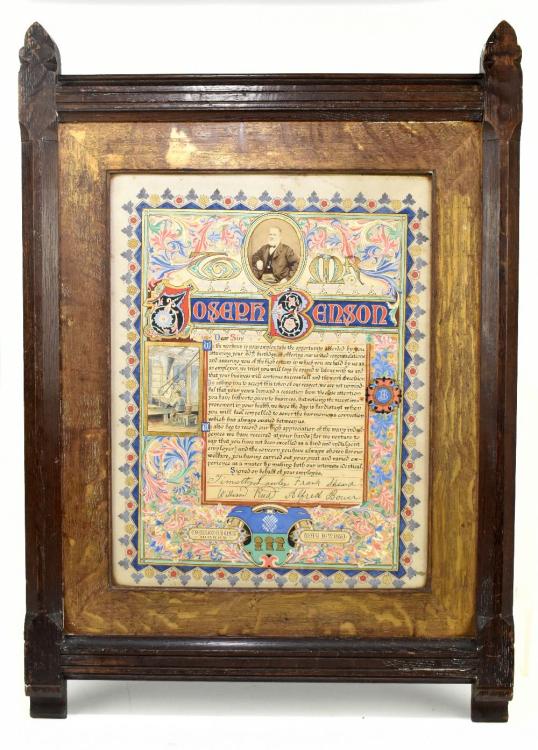 To Mr
Joseph Benson
Dear Sir,
We the workmen in your employ take the opportunity afforded by you
attaining your 60th birthday, of offering our united congratulations
and assuring you of the high esteem in which you are held by us as
an employer, we trust you will long be spared to labour with us and
that your business will continue successful and thrive
In asking you to accept this token of our respect, we are not unmind-
ful that your years demand a cessation from the close attention
you have hitherto given to business, but noticing the recent im-
provement in your health, we hope the day is far distant when
you will feel compelled to sever the harmonious connection
which has always existed between us.
We also beg to record our high appreciation of the many indul-
gences we have received at your hands (for we venture to
say that you have not been excelled as a kind and indulgent
employer) and the concern you have always shown for our
welfare, you having carried out your great and varied exp-
erience as a master by making both our interests identical.
Signed on behalf of your employees,
Timothy Frank
William Reid Alfred Bower
B
May